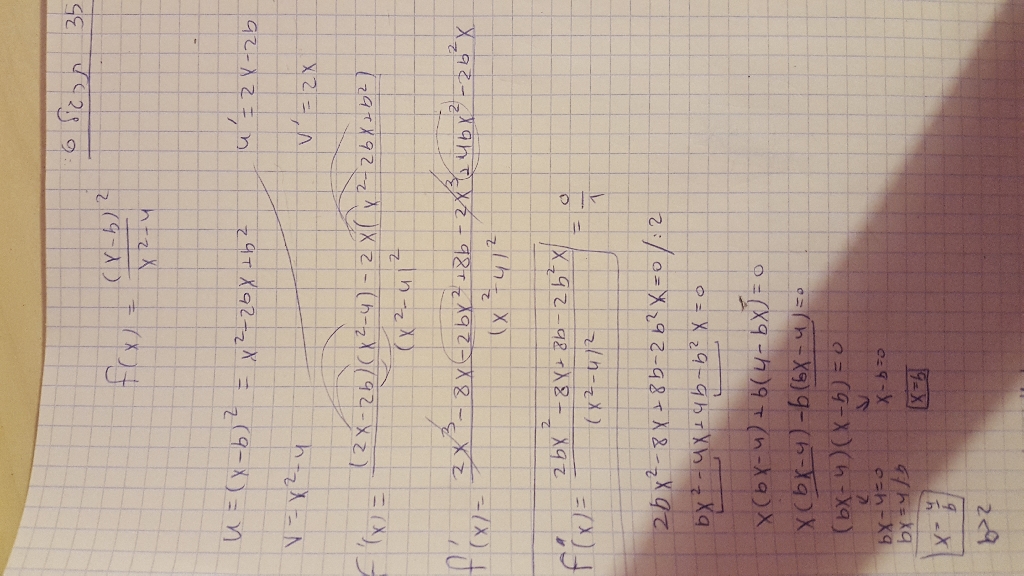 35
f(x) = (x-b)² / x²-4
u = (x-b)² = x²-2bx+b² u' = 2x-2b
v = x²-4 v' = 2x
f'(x) = (2x-2b)(x²-4)-2x(x²-2bx+b²) / (x²-4)²
f'(x) = 2x³-8x-2bx²+8b-2x³+4bx²-2b²x / (x²-4)²
f'(x) = 2bx²-8x+8b-2b²x / (x²-4)² = 0/1
2bx²-8x+8b-2b²x=0 /:2
bx²-4x+4b-b²x=0
x(bx-4)+b(4-bx)=0
x(bx-4)-b(bx-4)=0
(bx-4)(x-b)=0
bx-4=0 x-b=0
bx=4/b x=b
x=4/b
b>2